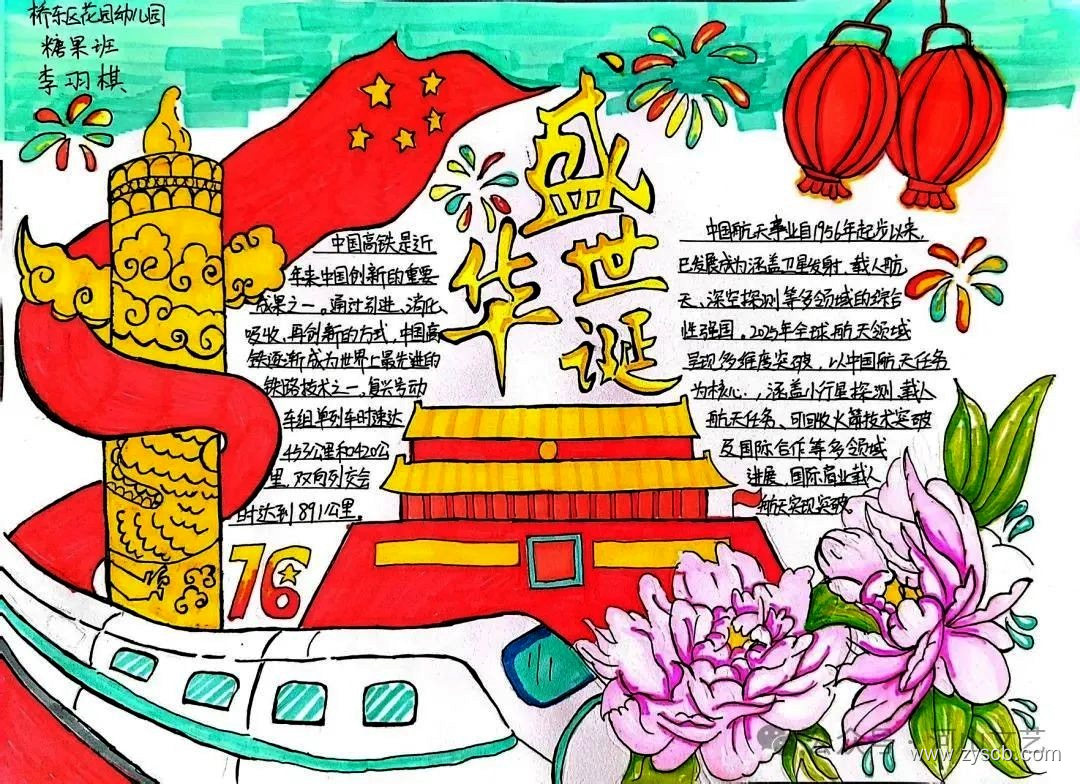 桥东区花园幼儿园
糖果班
李羽棋
盛世华诞
中国高铁是近
年来中国创新的重要
成果之一。通过引进、消化、
吸收、再创新的方式,中国高
铁逐渐成为世界上最先进的
铁路技术之一,复兴号动
车组单列车时速达
453公里和420公
里,双向列交会
时达到891公里。
中国航天事业自1956年起步以来,
已发展成为涵盖卫星发射、载人航
天、深空探测等多领域的综合
性强国。2025年全球航天领域
呈现多维度突破,以中国航天任务
为核心.,涵盖小行星探测、载人
航天任务、可回收火箭技术突破
及国际合作等多领域
进展,国际商业载人
航天实现突破。
76
公众号
www.zyscb.com